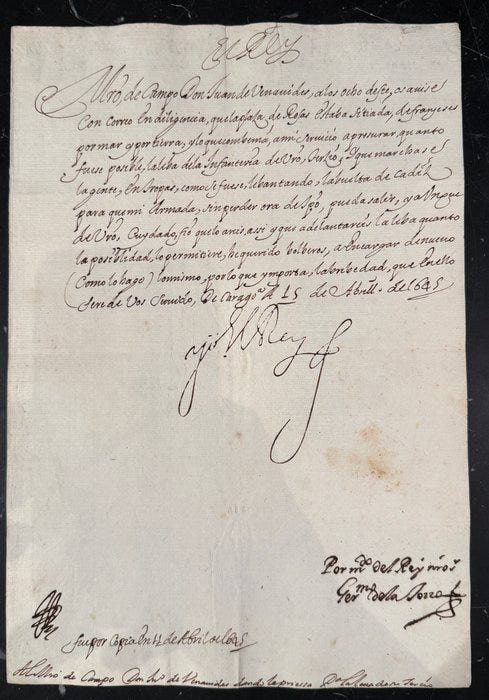 El Rey
Mro, de Campo Don Juan de Venauides, a los ocho deste, os auise
Con correo En diligencia, que la plaça de Rosas estaba Sitiada, de franceses
por mar y por tierra, y lo que importa, a mi Seruicio apresurar, quanto
fuese posible, la leba de la Infanteria de Vro, Tercio, y que marchase
la gente, en tropas, como se fuese, lebantando, la buelta de Cadiz
para que mi Armada, sin perder ora de tpo, pueda salir, y aunque
de Vro, Cuydado, fio que lo
la posiblidad, lo permitiere, he querido bolberos, a encargar de nueuo
(Como lo hago) lo mismo, por lo que ymporta, la brebedad, que en ello
Sere de Vos Seruido, De Çaragoça A 15 de Abrill de 1645
yo El Rey
Por mdo del Rey nro sr
Germo de la Torre
fue por Copia en 11 de Abril de 1645
Al Mro de Campo Don Juo de Venauides dando la priessa De la leua de su tercio